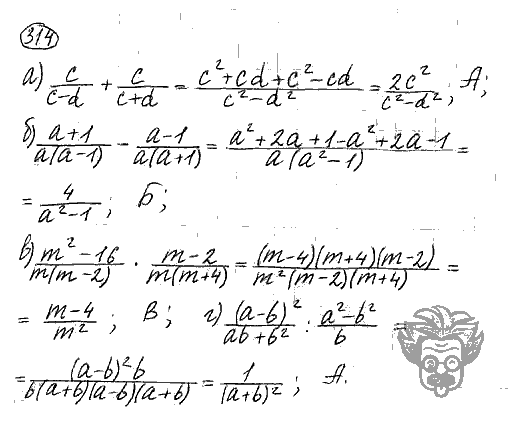 314
а) c/(c-d) + c/(c+d) = (c²+cd+c²-cd)/(c²-d²) = 2c²/(c²-d²); А;
б) (a+1)/(a(a-1)) - (a-1)/(a(a+1)) = (a²+2a+1-a²+2a-1)/(a(a²-1)) =
= 4/(a²-1); Б;
в) (m²-16)/(m(m-2)) · (m-2)/(m(m+4)) = ((m-4)(m+4)(m-2))/(m²(m-2)(m+4)) =
= (m-4)/m²; В; г) (a-b)²/(ab+b²) : (a²-b²)/b =
= ((a-b)²b)/(b(a+b)(a-b)(a+b)) = 1/(a+b)²; А.